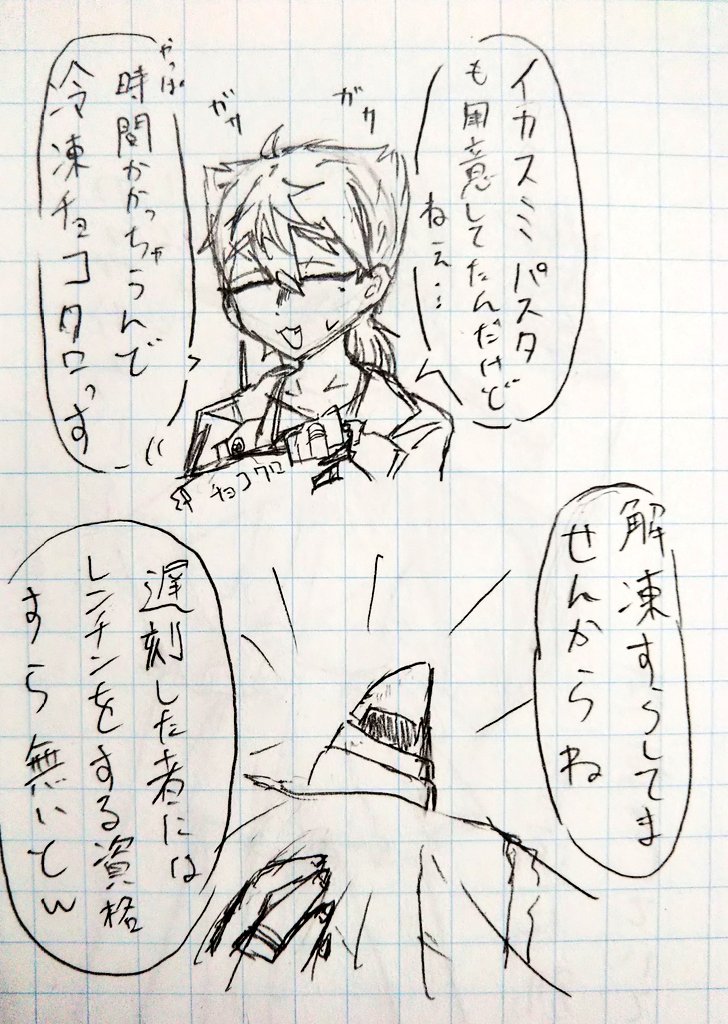 イカスミパスタ
も用意してたんだけど
ねェ…
ガサ
ガサ
やっぱ
時間かかっちゃうんで
冷凍チョコクロっす
チョコクロ
解凍すらしてま
せんからね
遅刻した者には
レンチンをする資格
すら無いてw